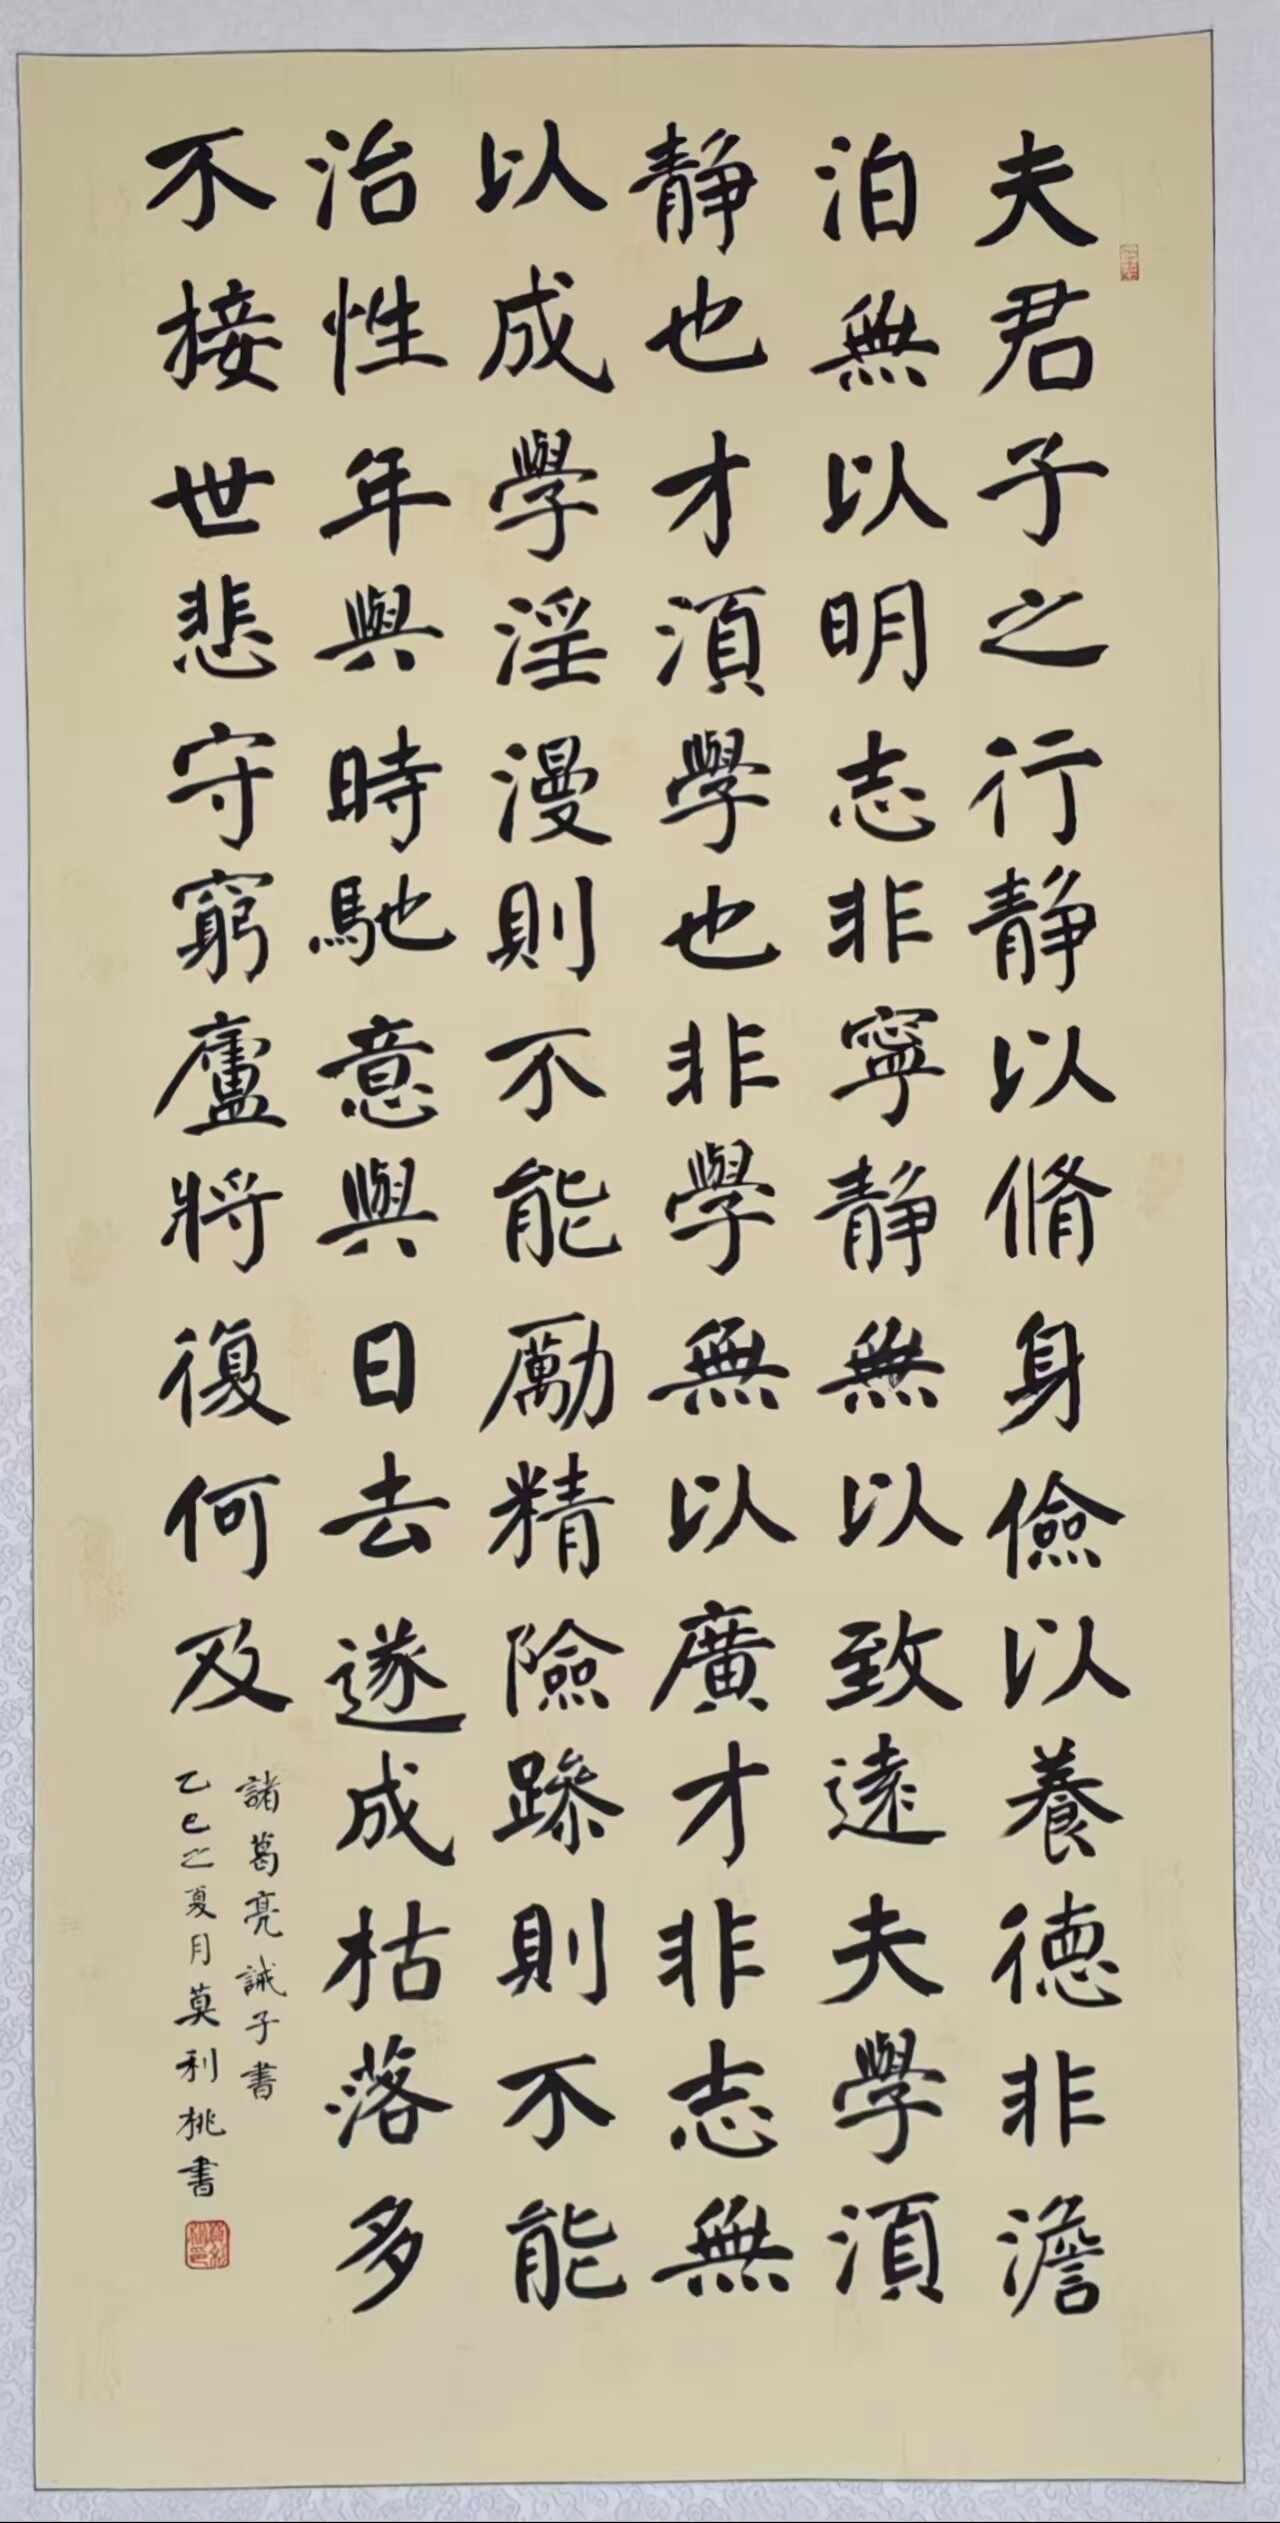 夫君子之行静以脩身儉以養德非澹
泊無以明志非寧静無以致遠夫學須
静也才須學也非學無以廣才非志無
以成學淫漫則不能勵精險躁則不能
治性年與時馳意與日去遂成枯落多
不接世悲守窮廬將復何及
諸葛亮誡子書
乙巳之夏月莫利桃書